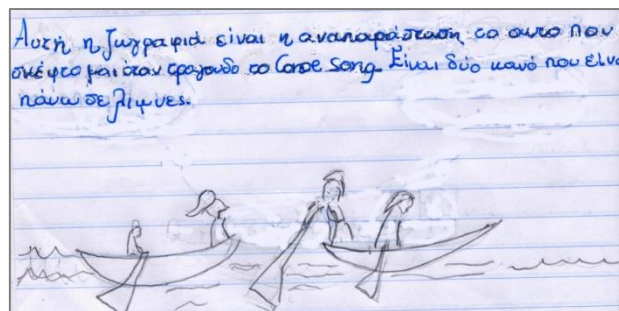 Αυτή η ζωγραφιά είναι η αναπαράσταση το αυτο που
σκέφτομαι όταν τραγουδο το Canoe Song. Είναι δύο κανό που είνα
πάνω σε λιμνες.